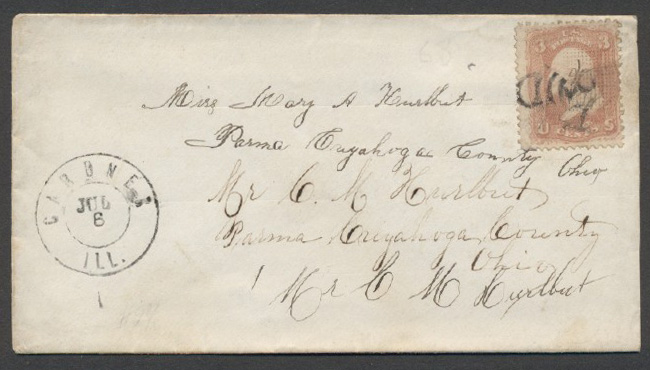 3 3
U S
Miss Mary A Hurlbut
Parma Cuyahoga County
Ohio
Mr C. M Hurlbut
Parma Cuyahoga County
Ohio
Mr C M Hurlbut
GARDNER
JUL
6
ILL.